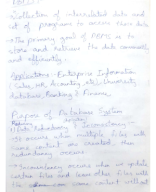 - Collection of interrelated data and
set of programs to access those data
- The primary goal of DBMS is to
store and retrieve the data conveniently
and efficiently.
Applications - Enterprise Information
Sales, HR, Accounting, etc., University,
Banking & Finance
Purpose of Database System
- It occurs when multiple files with
same content are created, then
redundancy occurs
- Inconsistency occurs when we update
certain files and leave other files with
the same content without